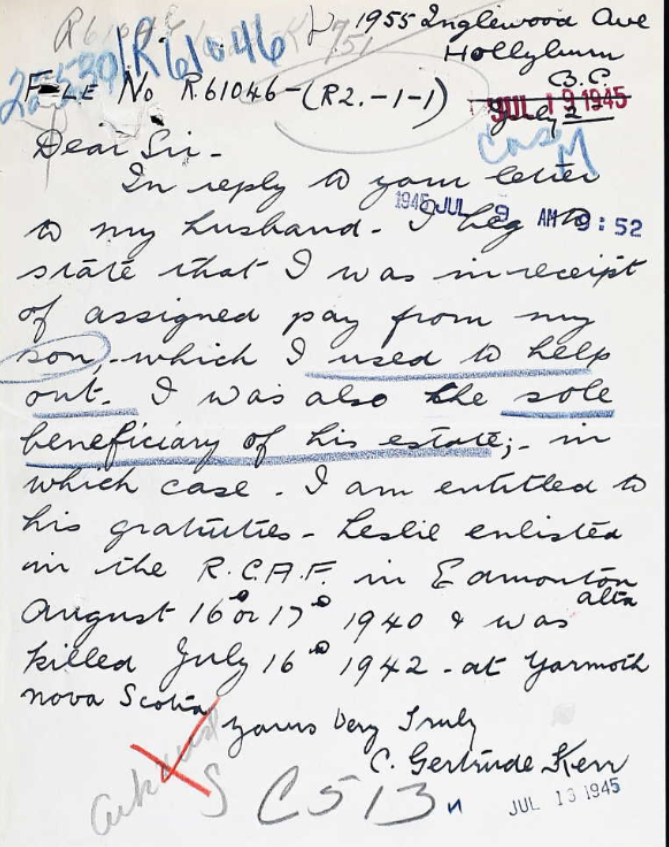 1955 Inglewood Ave
R61046
751
Hollyburn
25530/R61046
B.C.
File No R61046-(R2.-1-1)
JUL 19 1945
July 2
Dear Sir -
Case M
In reply to your letter
1945 JUL 9 AM 9:52
to my husband - I beg to
state that I was in receipt
of assigned pay from my
son, - which I used to help
out. I was also the sole
beneficiary of his estate; - in
which case - I am entitled to
his gratuities - Leslie enlisted
in the R.C.A.F. in Edmonton
alta
August 16 or 17 1940 & was
killed July 16 1942 - at Yarmoth
Nova Scotia
yours Very Truly
C. Gertrude Kerr
S
C513
JUL 13 1945